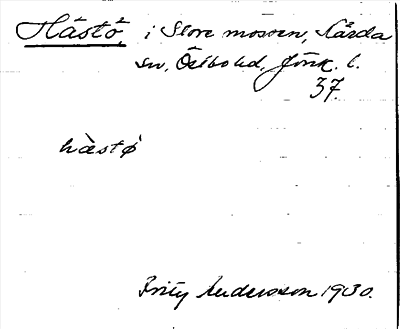 Hästö, i Store mossen, Kärda
sn, Östbo hd, Jönk. l.
37.
hæstø
Fritz Andersson 1930.